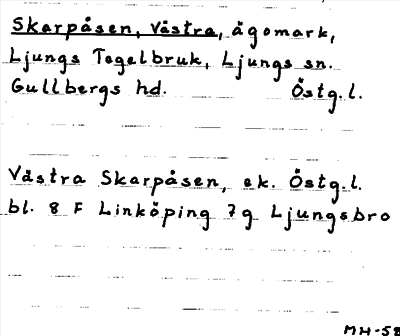 Skarpåsen, Västra, ägomark,
Ljungs Tegelbruk, Ljungs sn.
Gullbergs hd. Östg.l.
Västra Skarpåsen, ek. Östg.l.
bl. 8 F Linköping 7g Ljungsbro
MH-58